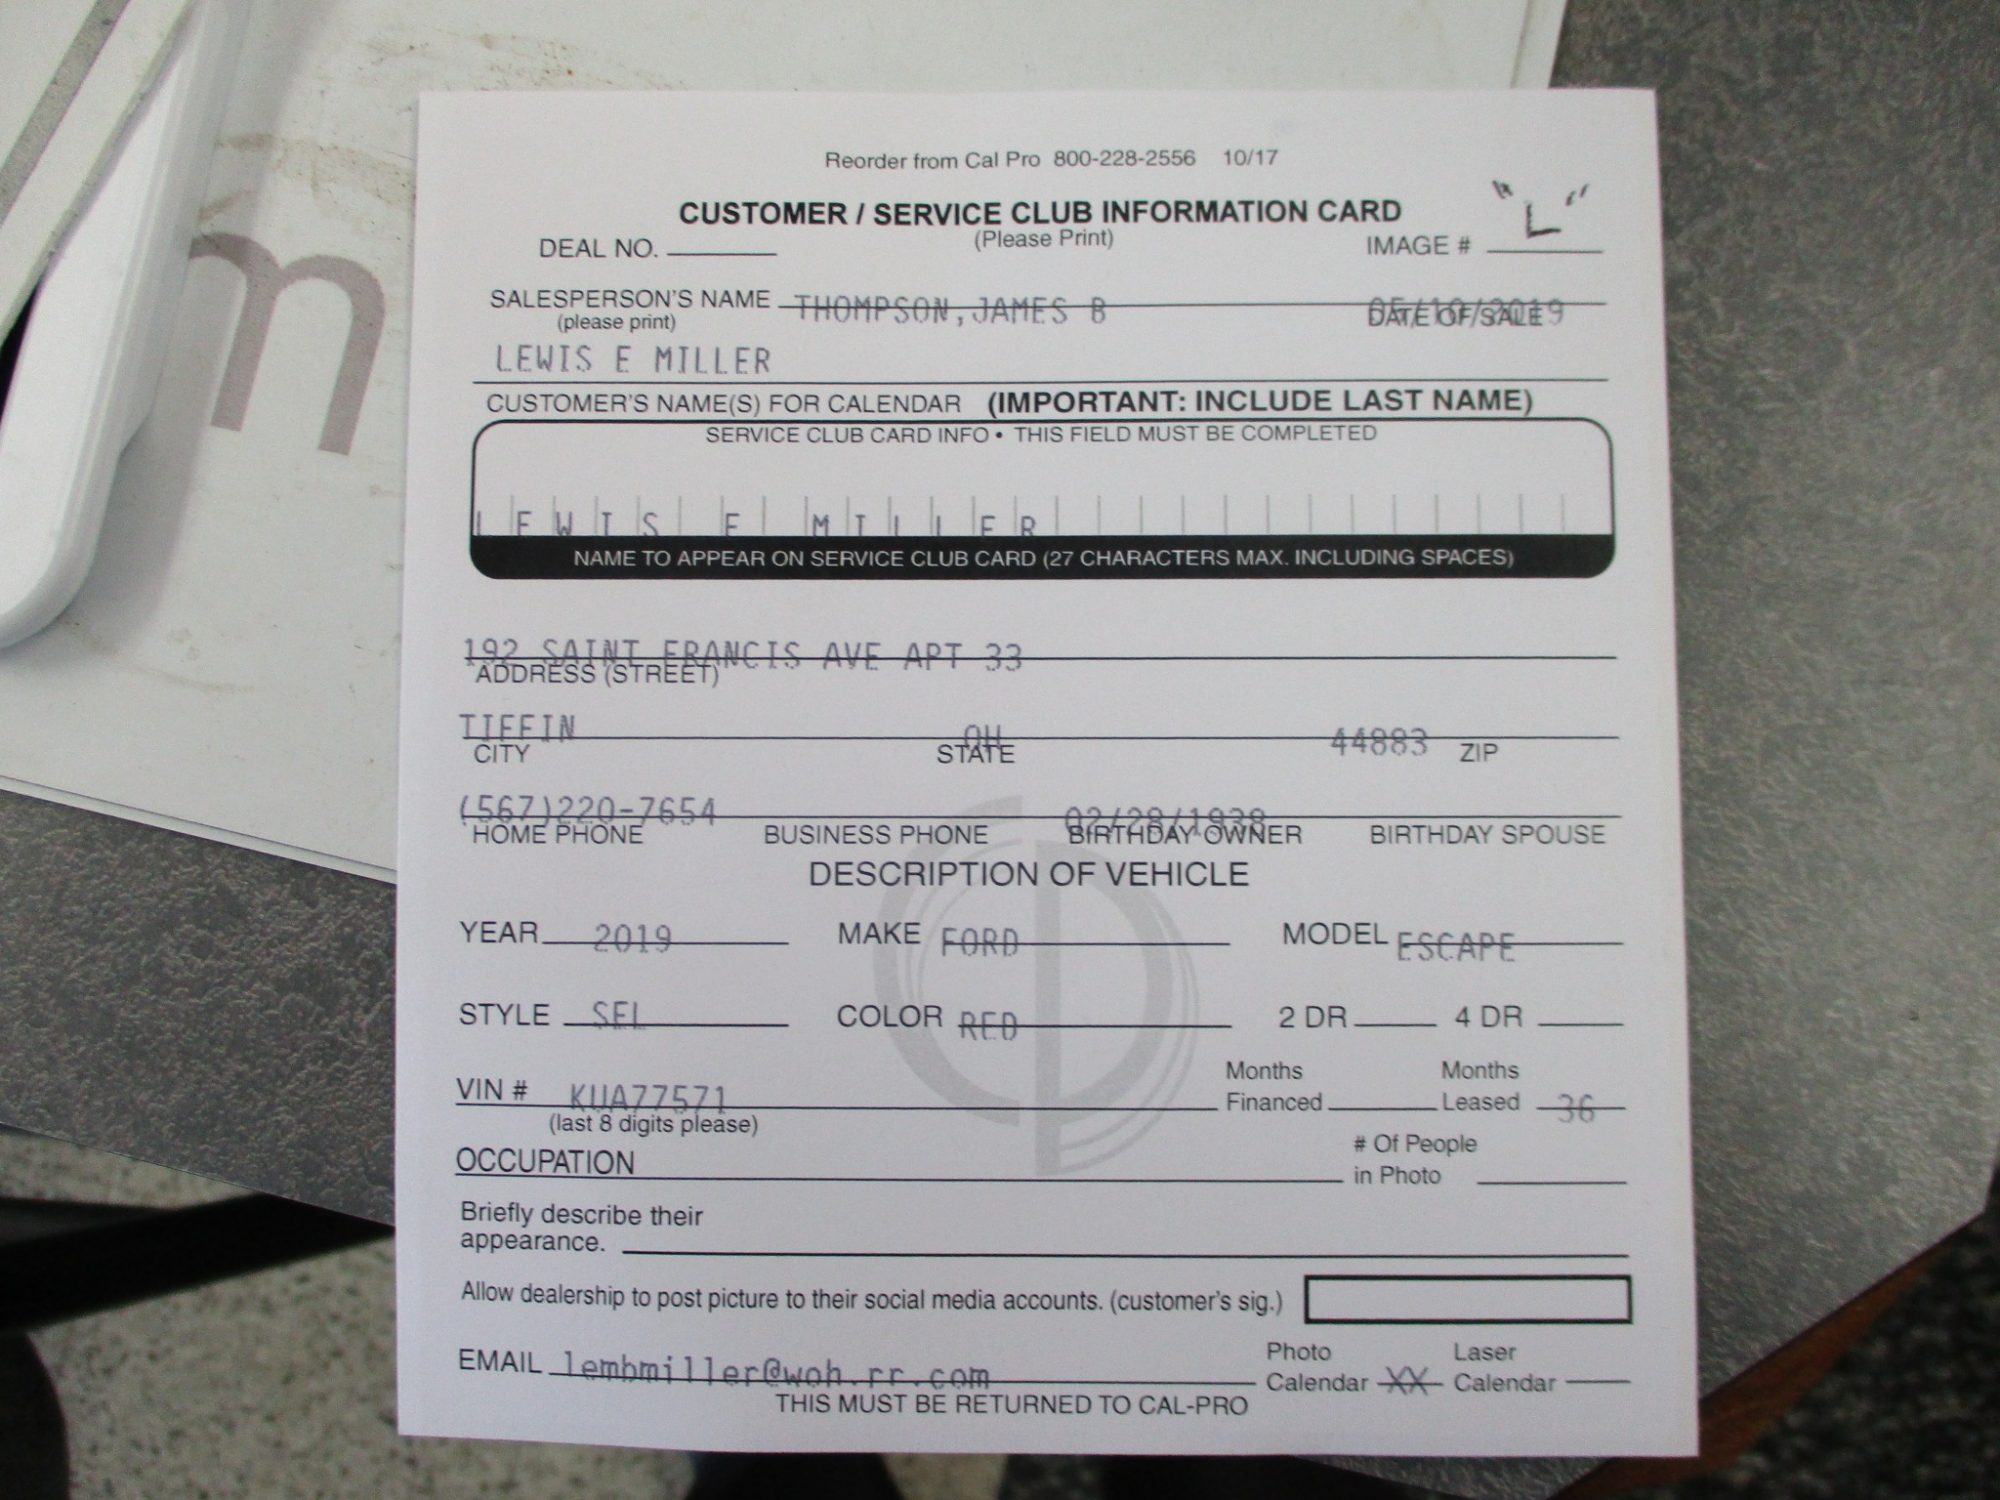 m
Reorder from Cal Pro 800-228-2556 10/17
CUSTOMER / SERVICE CLUB INFORMATION CARD
(Please Print)
DEAL NO. IMAGE # "L"
SALESPERSON'S NAME THOMPSON,JAMES B 05/10/2019
(please print) DATE OF SALE
LEWIS E MILLER
CUSTOMER'S NAME(S) FOR CALENDAR (IMPORTANT: INCLUDE LAST NAME)
SERVICE CLUB CARD INFO • THIS FIELD MUST BE COMPLETED
LEWIS E MILLER
NAME TO APPEAR ON SERVICE CLUB CARD (27 CHARACTERS MAX. INCLUDING SPACES)
192 SAINT FRANCIS AVE APT 33
ADDRESS (STREET)
TIFFIN OH 44883
CITY STATE ZIP
(567)220-7654 02/28/1938
HOME PHONE BUSINESS PHONE BIRTHDAY OWNER BIRTHDAY SPOUSE
DESCRIPTION OF VEHICLE
YEAR 2019 MAKE FORD MODEL ESCAPE
STYLE SEL COLOR RED 2 DR 4 DR
VIN # KUA77571 Months Financed Months Leased 36
(last 8 digits please)
OCCUPATION # Of People in Photo
Briefly describe their
appearance.
Allow dealership to post picture to their social media accounts. (customer's sig.)
EMAIL lembmiller@woh.rr.com Photo Calendar XX Laser Calendar
THIS MUST BE RETURNED TO CAL-PRO